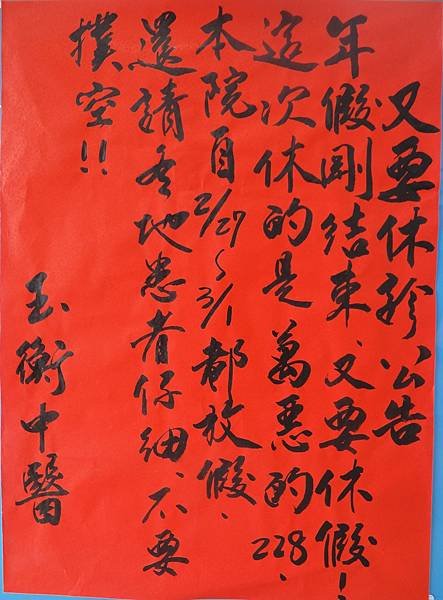 又要休診公告
年假剛結束、又要休假!
這次休的是萬惡的228、
本院自2/27~3/1都放假、
還請各地患者仔細、不要
撲空!!
玉衡中醫